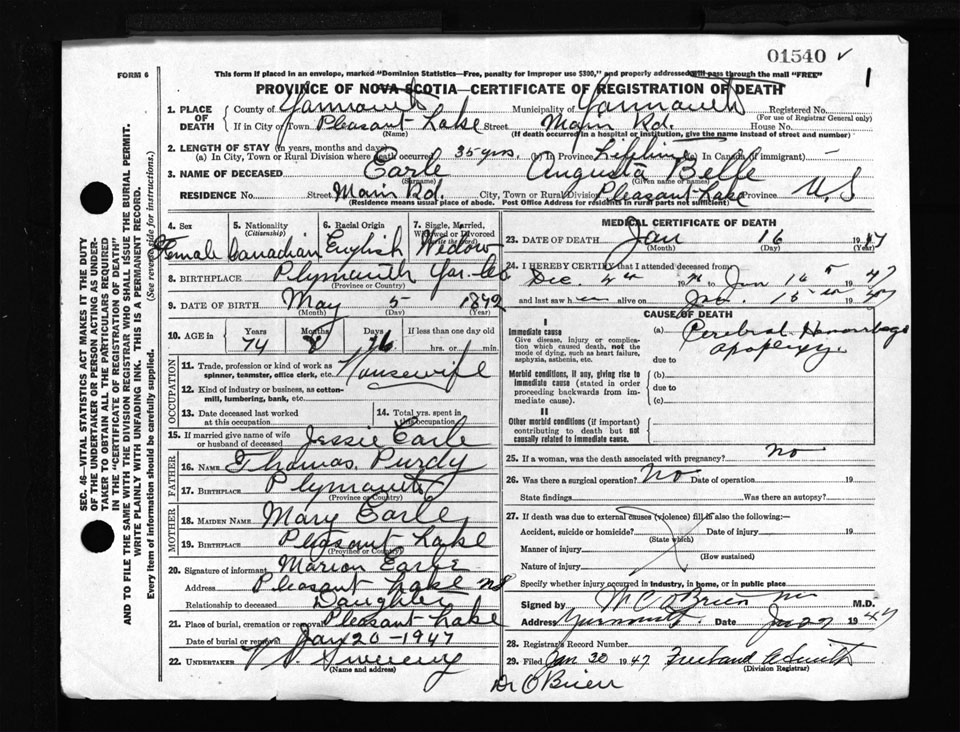 01540
FORM 6
This form if placed in an envelope, marked "Dominion Statistics—Free, penalty for improper use $300," and properly addressed will pass through the mail "FREE"
1
PROVINCE OF NOVA SCOTIA—CERTIFICATE OF REGISTRATION OF DEATH
1. PLACE OF DEATH County of Yarmouth Municipality of Yarmouth Registered No.
(For use of Registrar General only)
If in City or Town Pleasant Lake Street Main Rd. House No.
(Name) (If death occurred in a hospital or institution, give the name instead of street and number)
2. LENGTH OF STAY (in years, months and days)
(a) In City, Town or Rural Division where death occurred 35 yrs. (b) In Province Lifetime (c) In Canada (if immigrant)
3. NAME OF DECEASED Earle Augusta Belle
(Surname) (Given name or names)
RESIDENCE No. Street Main Rd. City, Town or Rural Division Pleasant Lake Province N.S
(Residence means usual place of abode. Post Office Address for residents in rural parts not sufficient)
4. Sex 5. Nationality (Citizenship) 6. Racial Origin 7. Single, Married, Widowed or Divorced (write the word)
Female Canadian English Widow
8. BIRTHPLACE Plymouth Yar. Co
(Province or Country)
9. DATE OF BIRTH May 5 1872
(Month) (Day) (Year)
10. AGE in Years Months Days If less than one day old
74 8 hrs. or min.
OCCUPATION
11. Trade, profession or kind of work as spinner, teamster, office clerk, etc. Housewife
12. Kind of industry or business, as cotton-mill, lumbering, bank, etc.
13. Date deceased last worked at this occupation 14. Total yrs. spent in this occupation
15. If married give name of wife or husband of deceased Jessie Earle
FATHER
16. Name Thomas Purdy
17. Birthplace Plymouth
(Province or Country)
MOTHER
18. Maiden Name Mary Earle
19. Birthplace Pleasant Lake
(Province or Country)
20. Signature of informant Marion Earle
Address Pleasant Lake NS
Relationship to deceased Daughter
21. Place of burial, cremation or removal Pleasant Lake
Date of burial or removal Jan 20-1947
22. UNDERTAKER Sweeny
(Name and address)
MEDICAL CERTIFICATE OF DEATH
23. DATE OF DEATH Jan 16 1947
(Month) (Day) (Year)
24. I HEREBY CERTIFY that I attended deceased from
Dec. 19 to Jan 16 1947
and last saw her alive on Jan. 15 1947
CAUSE OF DEATH
I
Immediate cause (a) Cerebral Hemorrhage
Give disease, injury or complication which caused death, not the mode of dying, such as heart failure, asphyxia, asthenia, etc.
apoplexy
due to
Morbid conditions, if any, giving rise to immediate cause (stated in order proceeding backwards from immediate cause). (b)
due to
(c)
II
Other morbid conditions (if important) contributing to death but not causally related to immediate cause.
25. If a woman, was the death associated with pregnancy? no
26. Was there a surgical operation? No Date of operation 19
State findings Was there an autopsy?
27. If death was due to external causes (violence) fill in also the following:—
Accident, suicide or homicide? Date of injury 19
(State which)
Manner of injury
(How sustained)
Nature of injury
Specify whether injury occurred in industry, in home, or in public place
Signed by W C O'Brien M.D.
Address Yarmouth Date Jan 1947
28. Registrar's Record Number
29. Filed Jan 30 1947 Freeband A Smith
(Division Registrar)
Dr O'Brien
SEC. 46—VITAL STATISTICS ACT MAKES IT THE DUTY
OF THE UNDERTAKER OR PERSON ACTING AS UNDER-
TAKER TO OBTAIN ALL THE PARTICULARS REQUIRED
IN THE "CERTIFICATE OF REGISTRATION OF DEATH"
AND TO FILE THE SAME WITH THE DIVISION REGISTRAR WHO SHALL ISSUE THE BURIAL PERMIT.
WRITE PLAINLY WITH UNFADING INK. THIS IS A PERMANENT RECORD.
Every item of information should be carefully supplied. (See reverse side for instructions.)